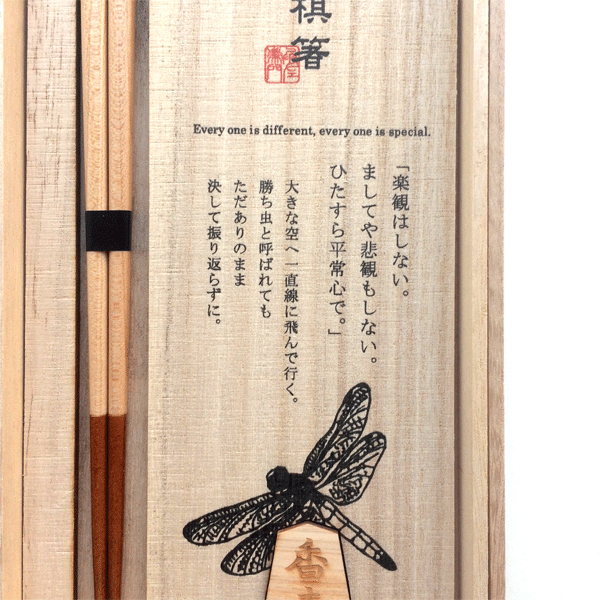 棋箸
Every one is different, every one is special.
「楽観はしない。
ましてや悲観もしない。
ひたすら平常心で。」
大きな空へ一直線に飛んで行く。
勝ち虫と呼ばれても
ただありのまま
決して振り返らずに。
香